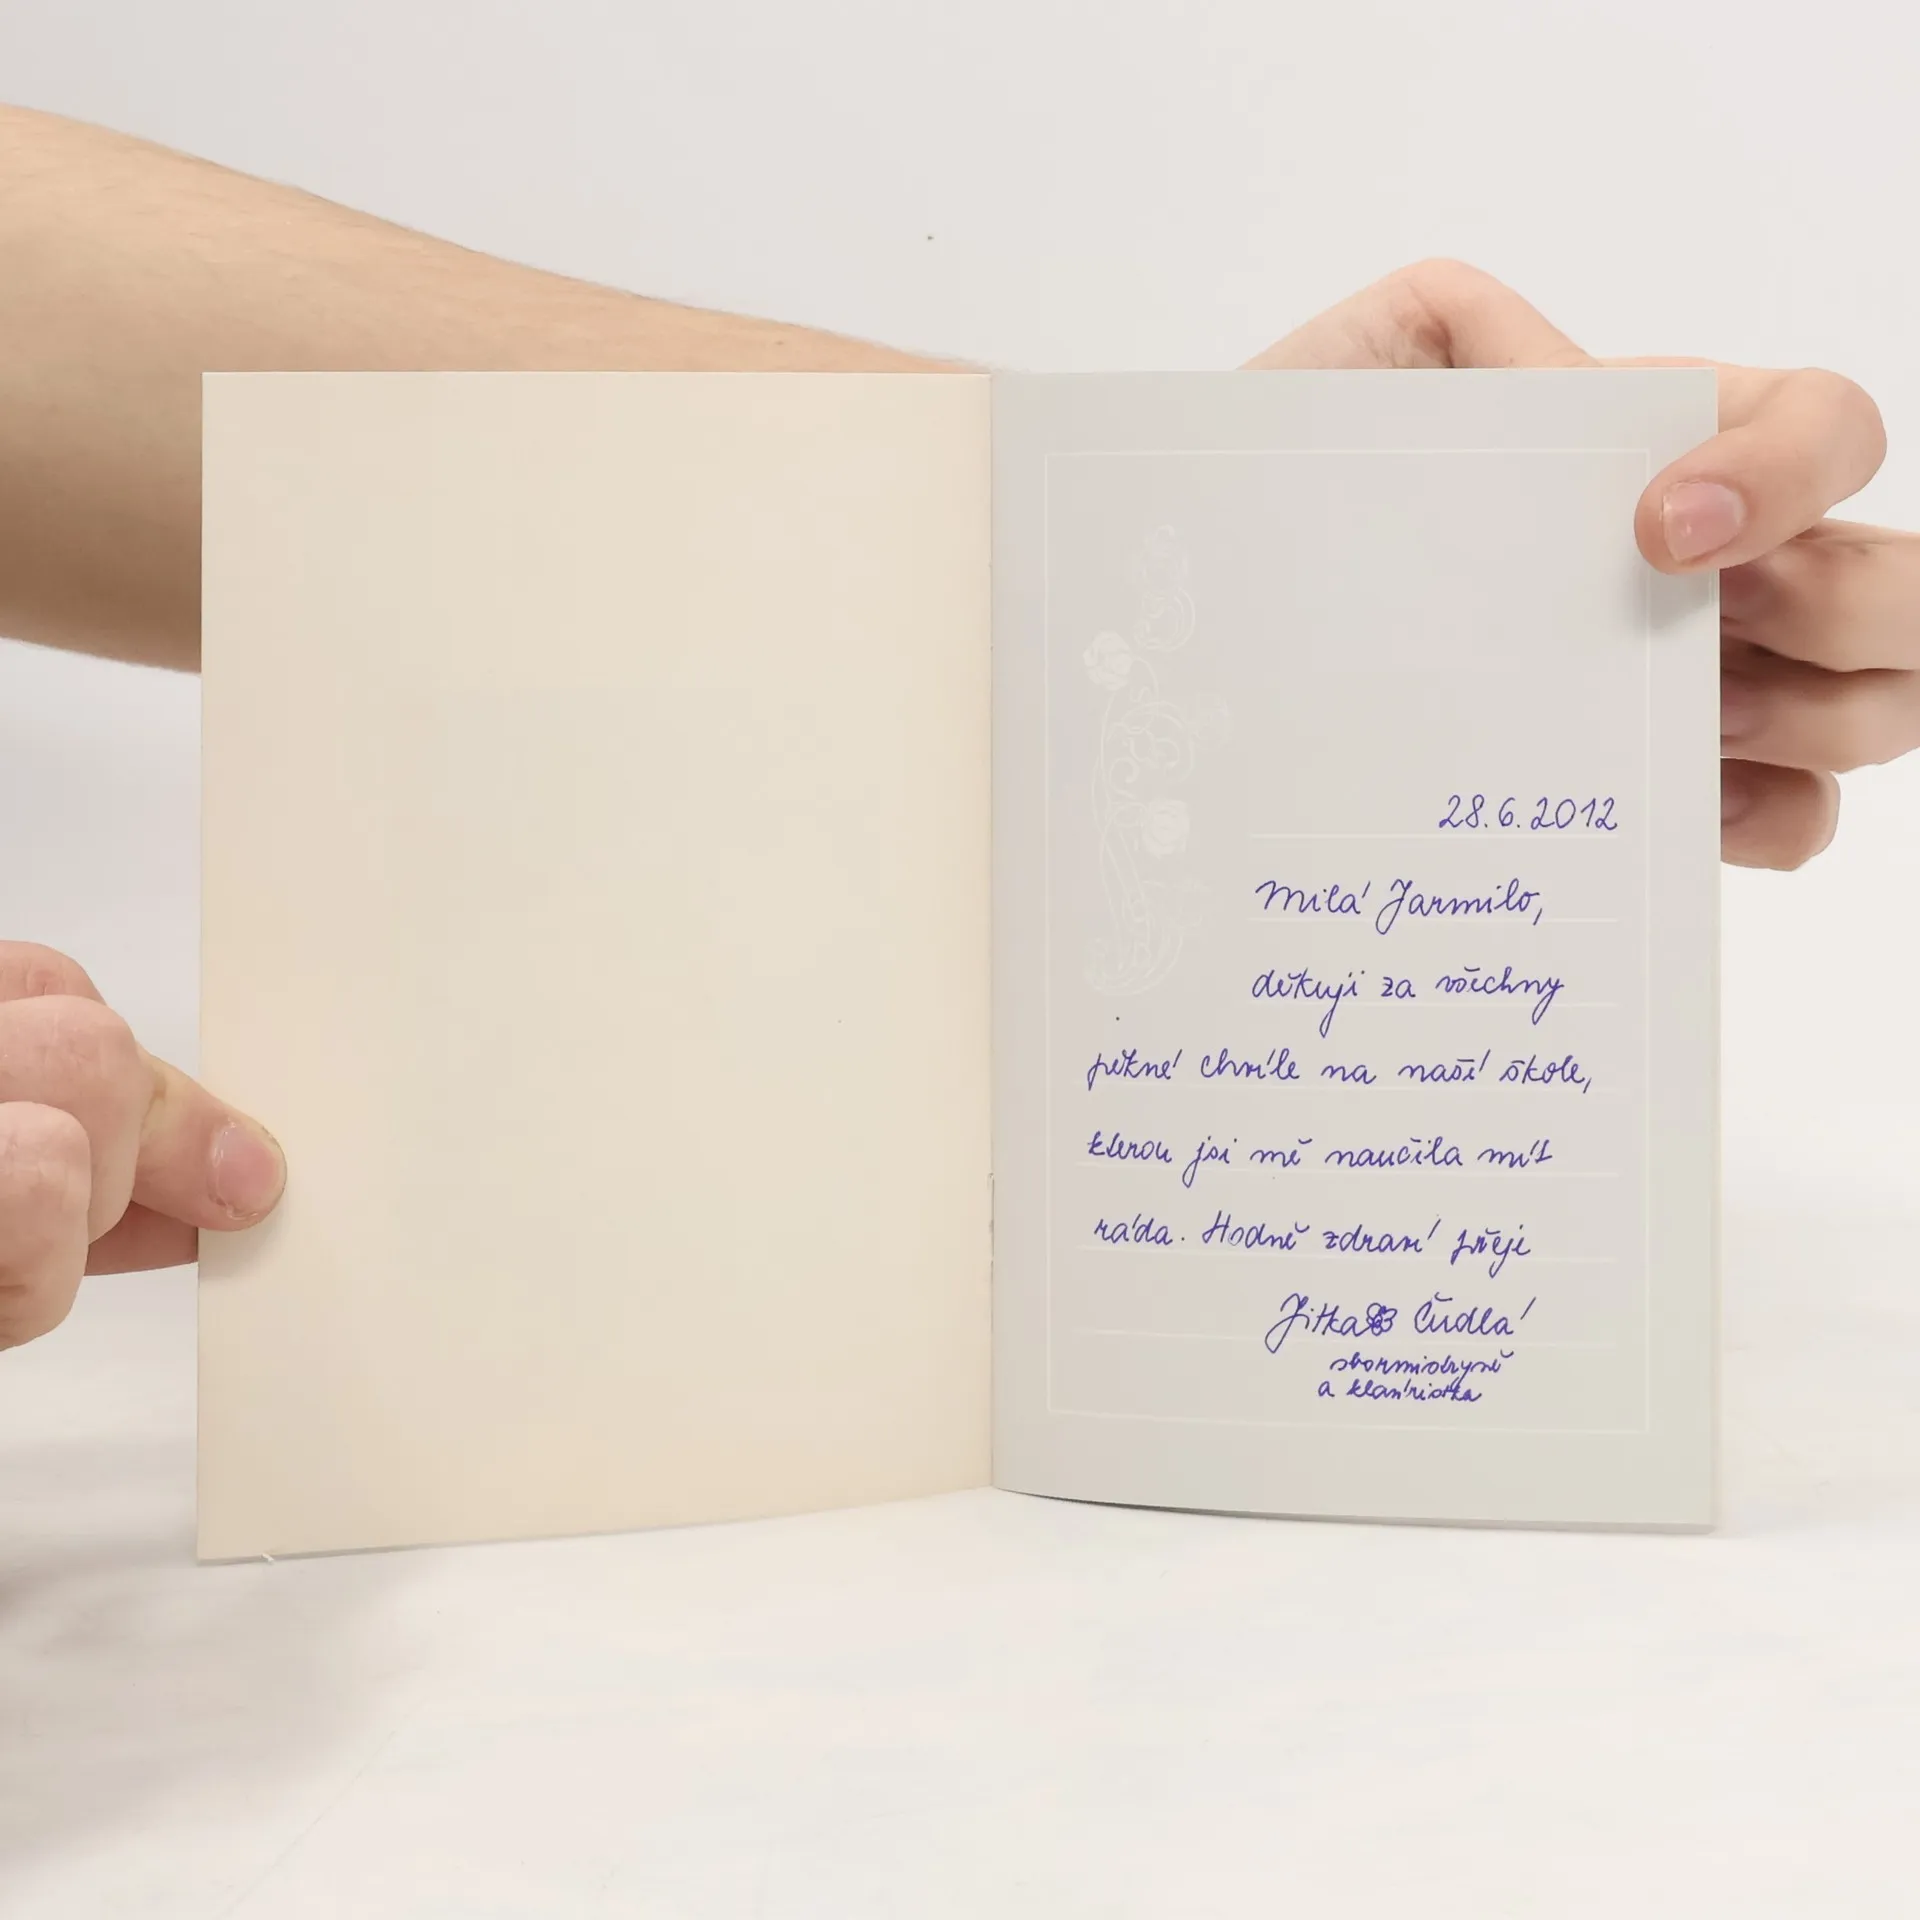 28.6.2012
Milá Jarmilo,
děkuji za všechny
pěkné chvíle na naší škole,
kterou jsi mě naučila mít
ráda. Hodně zdraví přeji
Jitka Čudlá
sbormistryně
a klavíristka